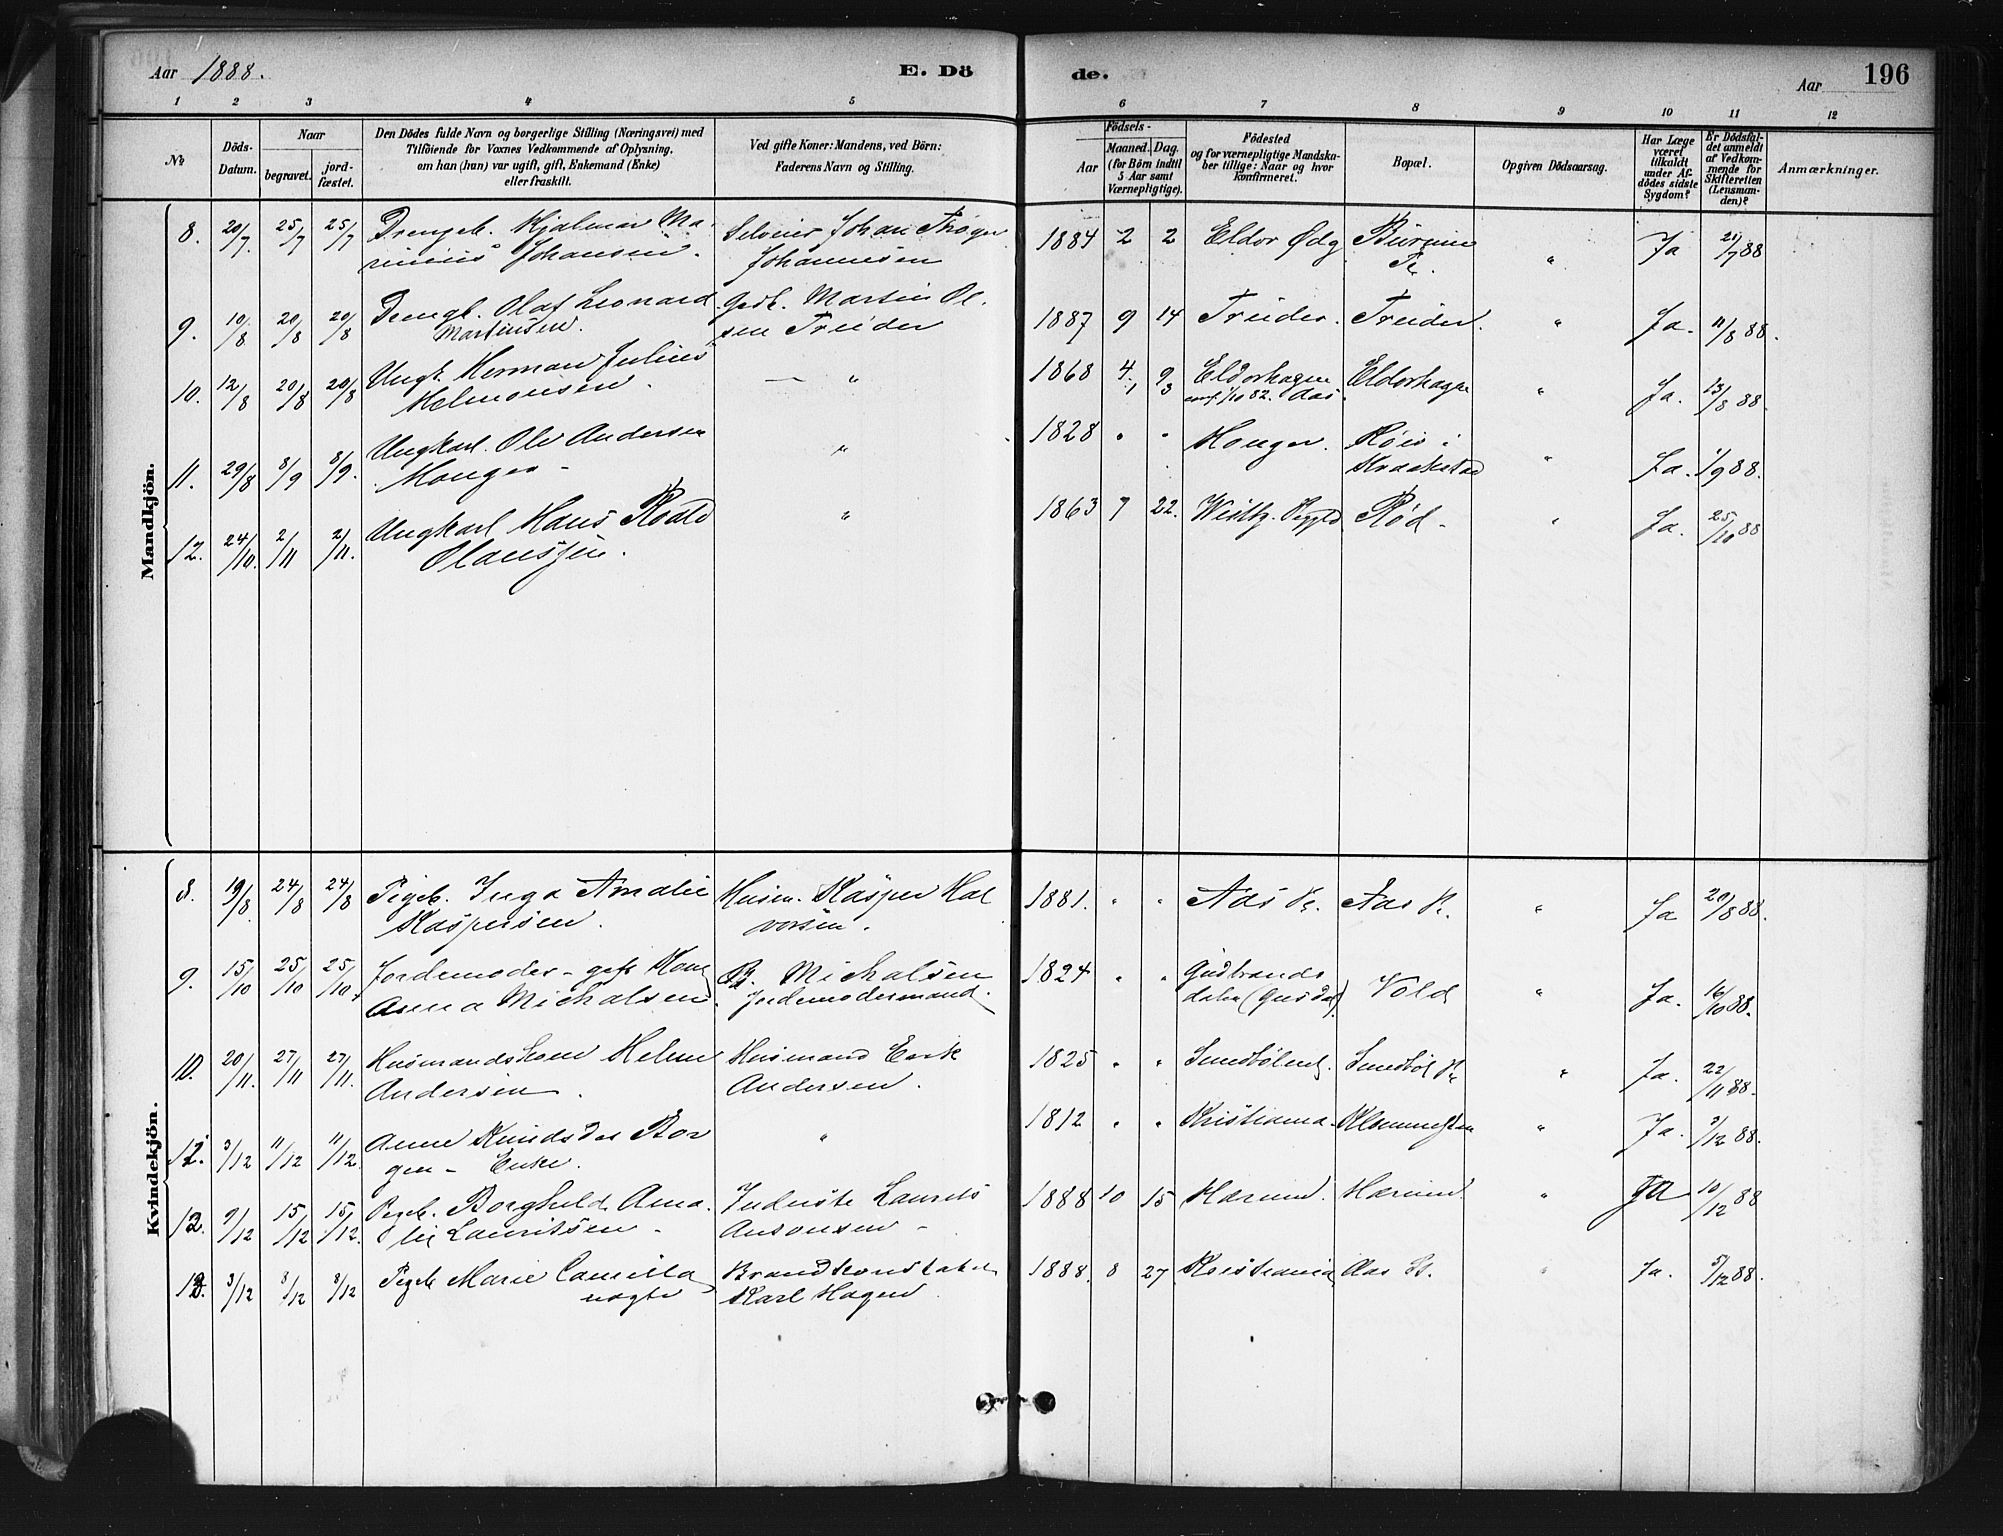 Aar 1888. E. Dö de. Aar 196
1 2 3 4 5 6 7 8 9 10 11 12
No
Döds-Datum.
Naar
begravet.
jord-fæstet.
Den Dödes fulde Navn og borgerlige Stilling (Næringsvei) med
Tilföiende for Voxnes Vedkommende af Oplysning,
om han (hun) var ugift, gift, Enkemand (Enke)
eller fraskilt.
Ved gifte Koner: Mandens, ved Börn:
Faderens Navn og Stilling.
Födsels-
Aar
Maaned. Dag.
(for Börn indtil
5 Aar samt
Værnepligtige).
Födested
og for værnepligtige Mandska-
ber tillige: Naar og hvor
konfirmeret.
Bopæl.
Opgiven Dödsaarsag.
Har Læge
været
tilkaldt
under Af-
dödes sidste
Sygdom?
Er Dödsfal-
det anmeldt
af Vedkom-
mende for
Skifteretten
(Lensman-
den)?
Anmærkninger.
Mandkjön.
8. 20/7 25/7 25/7 Drengeb. Hjalmar Ma- Johan 1884 2 2 Eldor Ja 21/7 88
rinius Johansen. Johannesen
9. 10/8 20/8 20/8 Drengb. Olaf Leonard Martin Ol- 1887 9 14 Treider. Treider. " Ja. 11/8 88.
Martinsen. sen Treider
10. 12/8 20/8 20/8 Ungk. Herman Julius — " 1868 4 9 Eldorhagen Eldorhagen " Ja. 13/8 88.
Helmonsen. 82. Aas.
11. 29/8 8/9 8/9. Ungkarl. Ole Andersen " 1828 " " Honger. i " Ja. 1/9 88.
Honger - Kraakstad
12. 24/10. 2/11 2/11. Ungkarl Hans Roald " 1863 7 22. Röd. " Ja. 25/10 88
Olanssen.
Kvindekjön.
8. 19/8. 24/8 24/8 Pigeb. Inga Amalie Husm. Kasper Hal 1881. " " Aas Pr. Aas Pr. " Ja 20/8 88.
Kaspersen. vorsen.
9. 15/10 25/10 25/10 Jordemoder - gift Kone Michalsen 1824 " " Gudbrands Vold " Ja. 16/10 88.
Anna Michalsen. Jordemodermand. dalen
10. 20/11. 27/11 27/11. Husmandskone Helene Husmand Erik 1825 " " " Ja. 22/11 88.
Andersen. Andersen.
11. 3/12 11/12 11/12. Anne Knudsdr Bor " 1812 " " Kristiania " Ja. 3/12 88.
gen - Enke.
12. 9/12 15/12 15/12. Pigeb. Borghild Ama- Inderste Laurits 1888 10 15 Hærum. Hærum. " Ja 10/12 88
lie Lauritsen - Antonsen -
13. 3/12 8/12 8/12 Pigeb Marie Camilla Brandkonstabel 1888. 8 27 Kristiania Aas St. " Ja. 5/12 88.
uægte Karl Hagen.